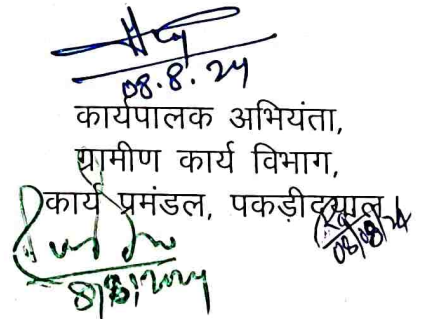 08.8.24
कार्यपालक अभियंता,
ग्रामीण कार्य विभाग,
कार्य प्रमंडल, पकड़ीदयाल
08/08/24
8/8/2024